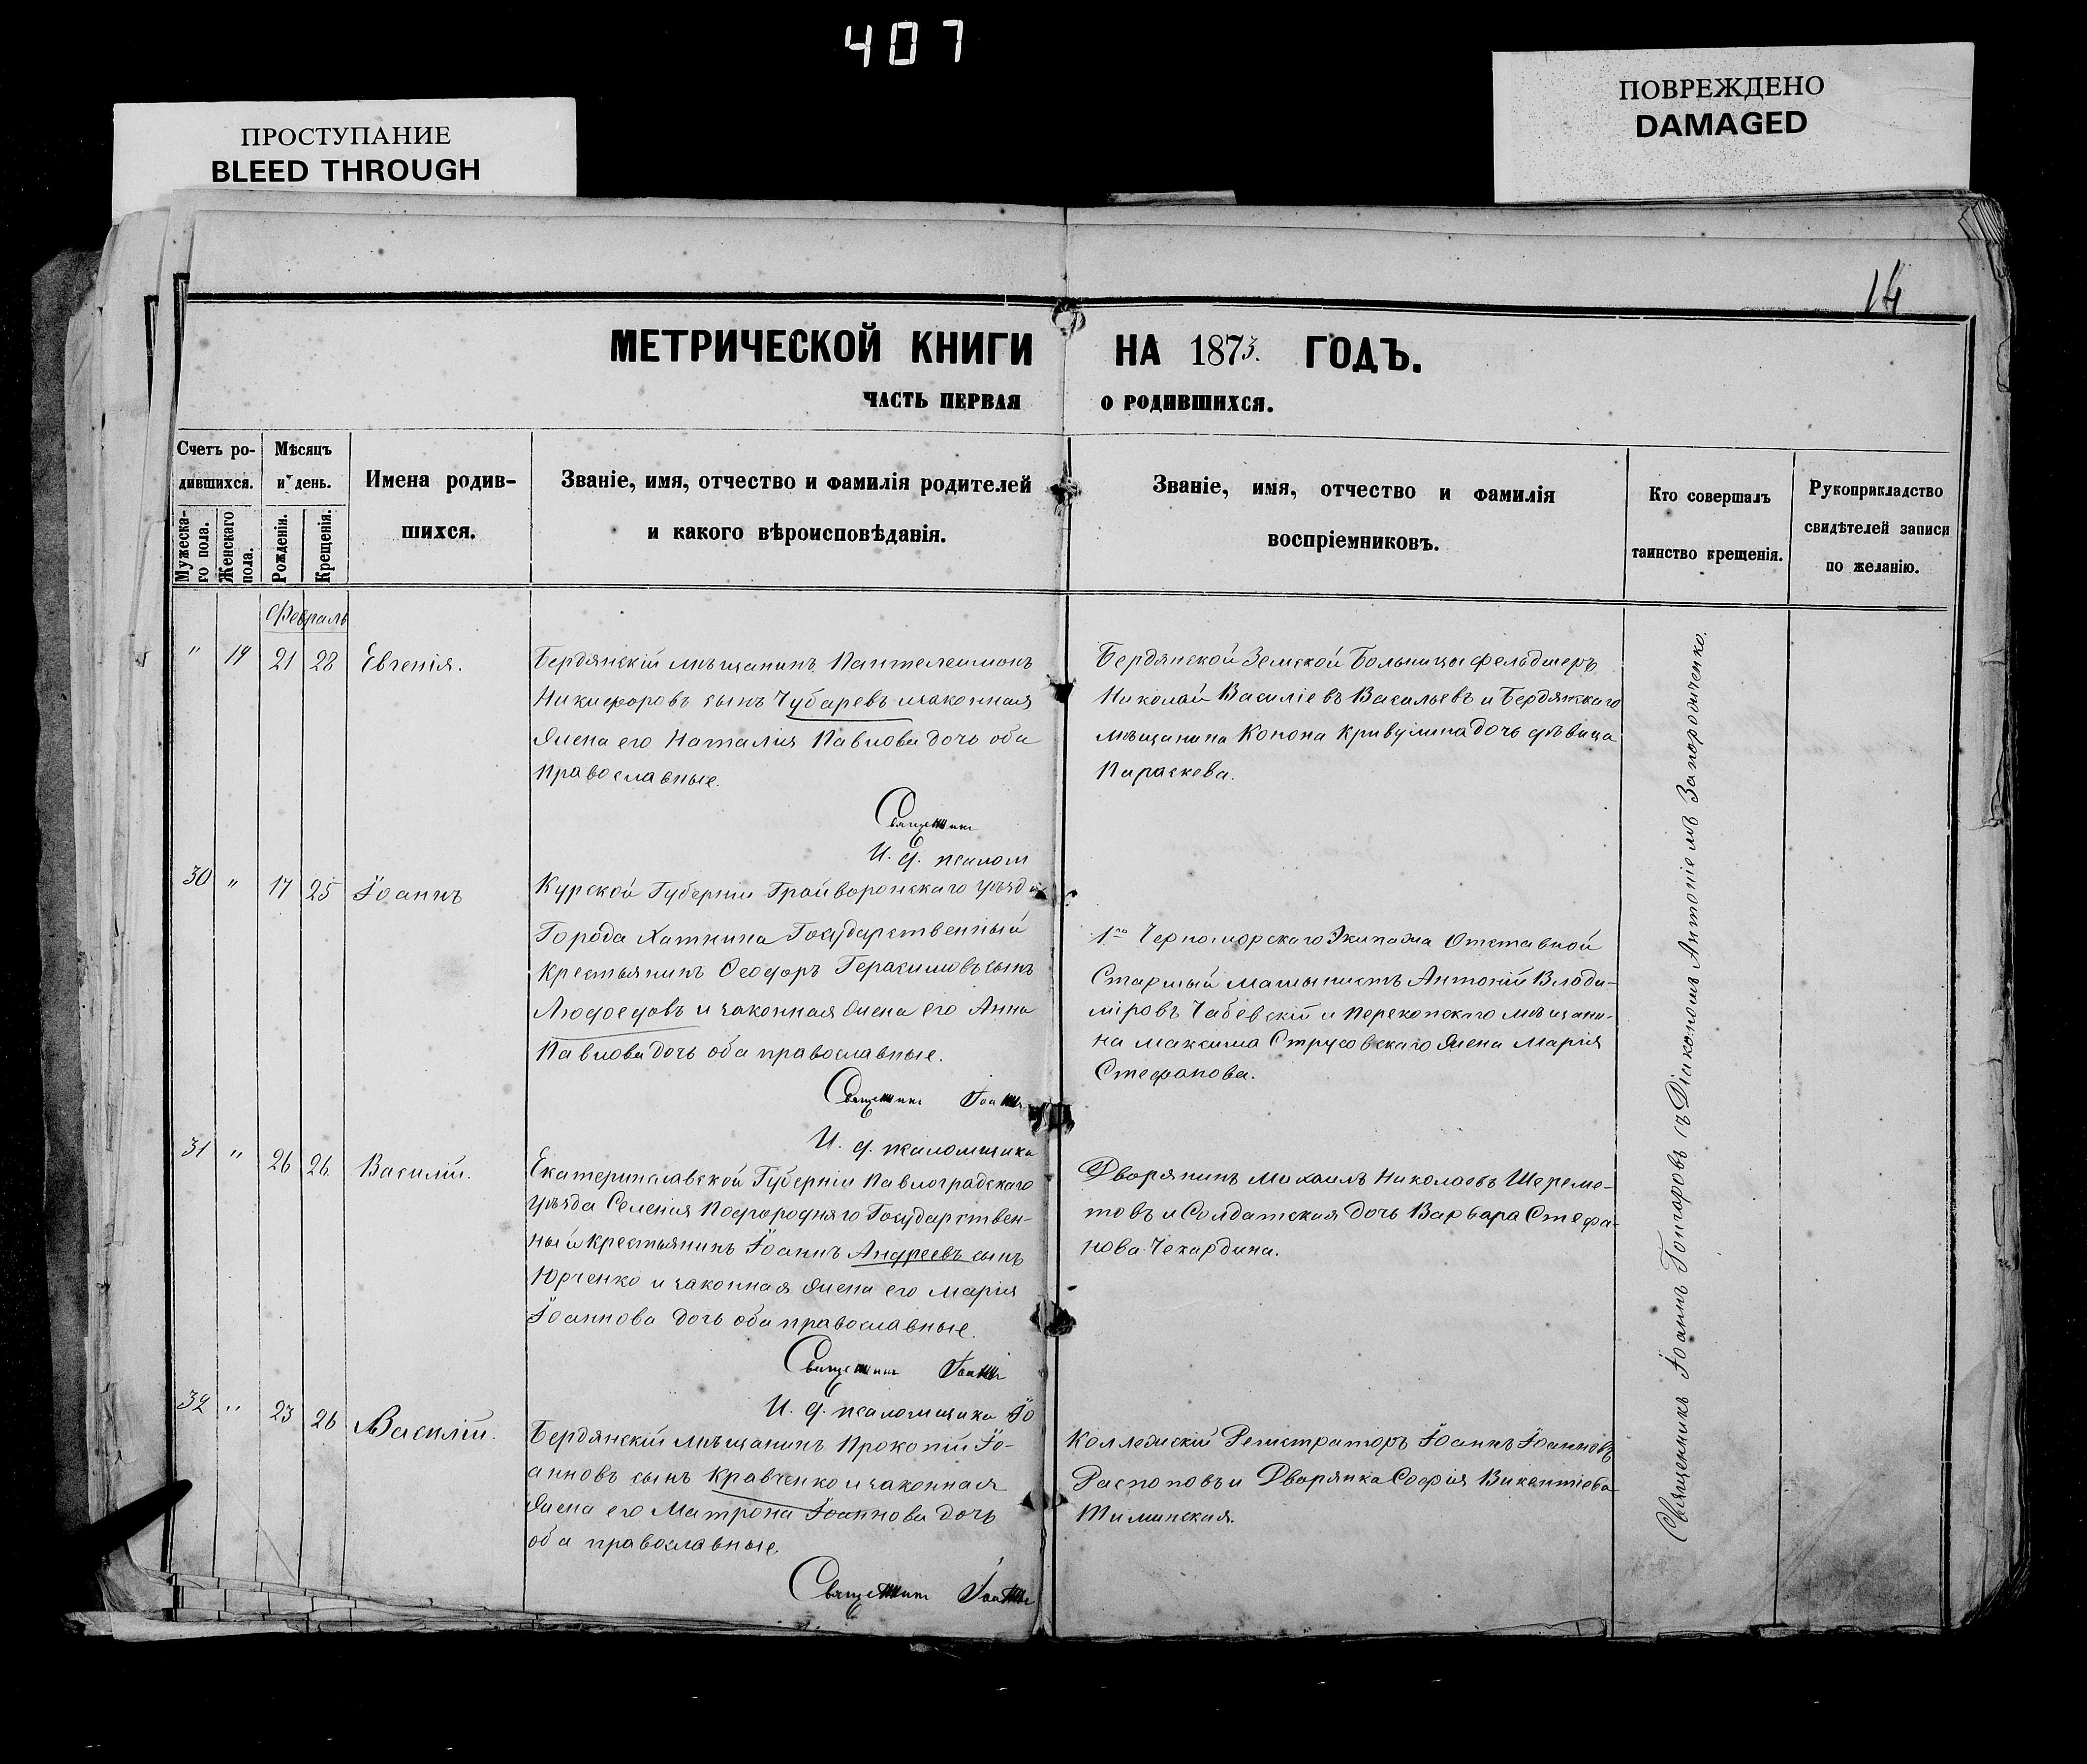 407
ПРОСТУПАНИЕ
BLEED THROUGH
ПОВРЕЖДЕНО
DAMAGED
14
МЕТРИЧЕСКОЙ КНИГИ НА 1873. ГОДЪ.
ЧАСТЬ ПЕРВАЯ О РОДИВШИХСЯ.
Счетъ ро-
дившихся.
Мужеска-
го пола.
Женскаго
пола.
Мѣсяцъ
и день.
Рожденія.
Крещенія.
Имена родив-
шихся.
Званіе, имя, отчество и фамилія родителей
и какого вѣроисповѣданія.
Званіе, имя, отчество и фамилія
воспріемниковъ.
Кто совершалъ
таинство крещенія.
Рукоприкладство
свидѣтелей записи
по желанію.
Февраль
" 19 21 28 Евгенія.
Бердянскій мѣщанинъ Пантелеимонъ
Никифоровъ сынъ Чубаревъ и законная
жена его Наталія Павлова дочь оба
православные.
Священникъ
И. д. псалом
Бердянской Земской Больницы фельдшеръ
Николай Василіевъ Васильевъ и Бердянскаго
мѣщанина Конона Кривулина дочь дѣвица
Параскева.
30 " 17 25 Іоаннъ
Курской Губерніи Грайворонскаго уѣзда
Города Хатнина Государственный
крестьянинъ Ѳеодоръ Герасимовъ сынъ
Людоедовъ и законная жена его Анна
Павлова дочь оба православные.
Священникъ Іоаннъ
И. д. псаломщика
1го Черноморскаго Экипажа Отставной
Старшый Машынистъ Антоній Влади-
міровъ Чабевскій и Перекопскаго мѣщани-
на Максима Струсовскаго жена Марія
Стефанова.
31 " 26 26 Василій.
Екатеринславской Губерніи Павлоградскаго
уѣзда Селенія Подгородняго Государствен-
ный крестьянинъ Іоаннъ Андреевъ сынъ
Юрченко и законная жена его Марія
Іоаннова дочь оба православные.
Священникъ Іоаннъ
И. д. псаломщика Іо
Дворянинъ Михаилъ Николаевъ Шереме-
товъ и Солдатская дочь Варвара Стефа-
нова Чекардина.
32 " 23 26 Василій.
Бердянскій мѣщанинъ Прокопій Іо-
анновъ сынъ Кравченко и законная
жена его Матрона Іоаннова дочь
оба православные.
Священникъ Іоаннъ
Коллежскій Регистраторъ Іоаннъ Іоанновъ
Распоповъ и Дворянка Софія Викентіева
Тиминская.
Священникъ Іоаннъ Гонгофовъ съ Діакономъ Антоніемъ Запородченко.